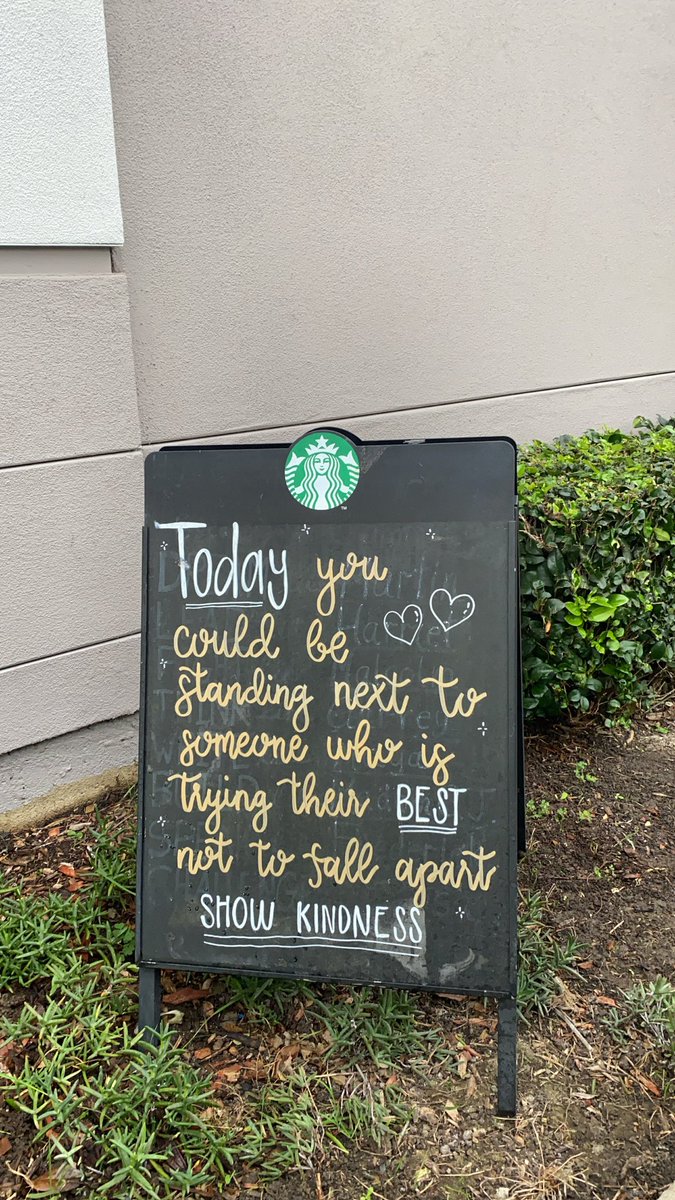 Today you
could be
standing next to
someone who is
trying their BEST
not to fall apart
SHOW KINDNESS